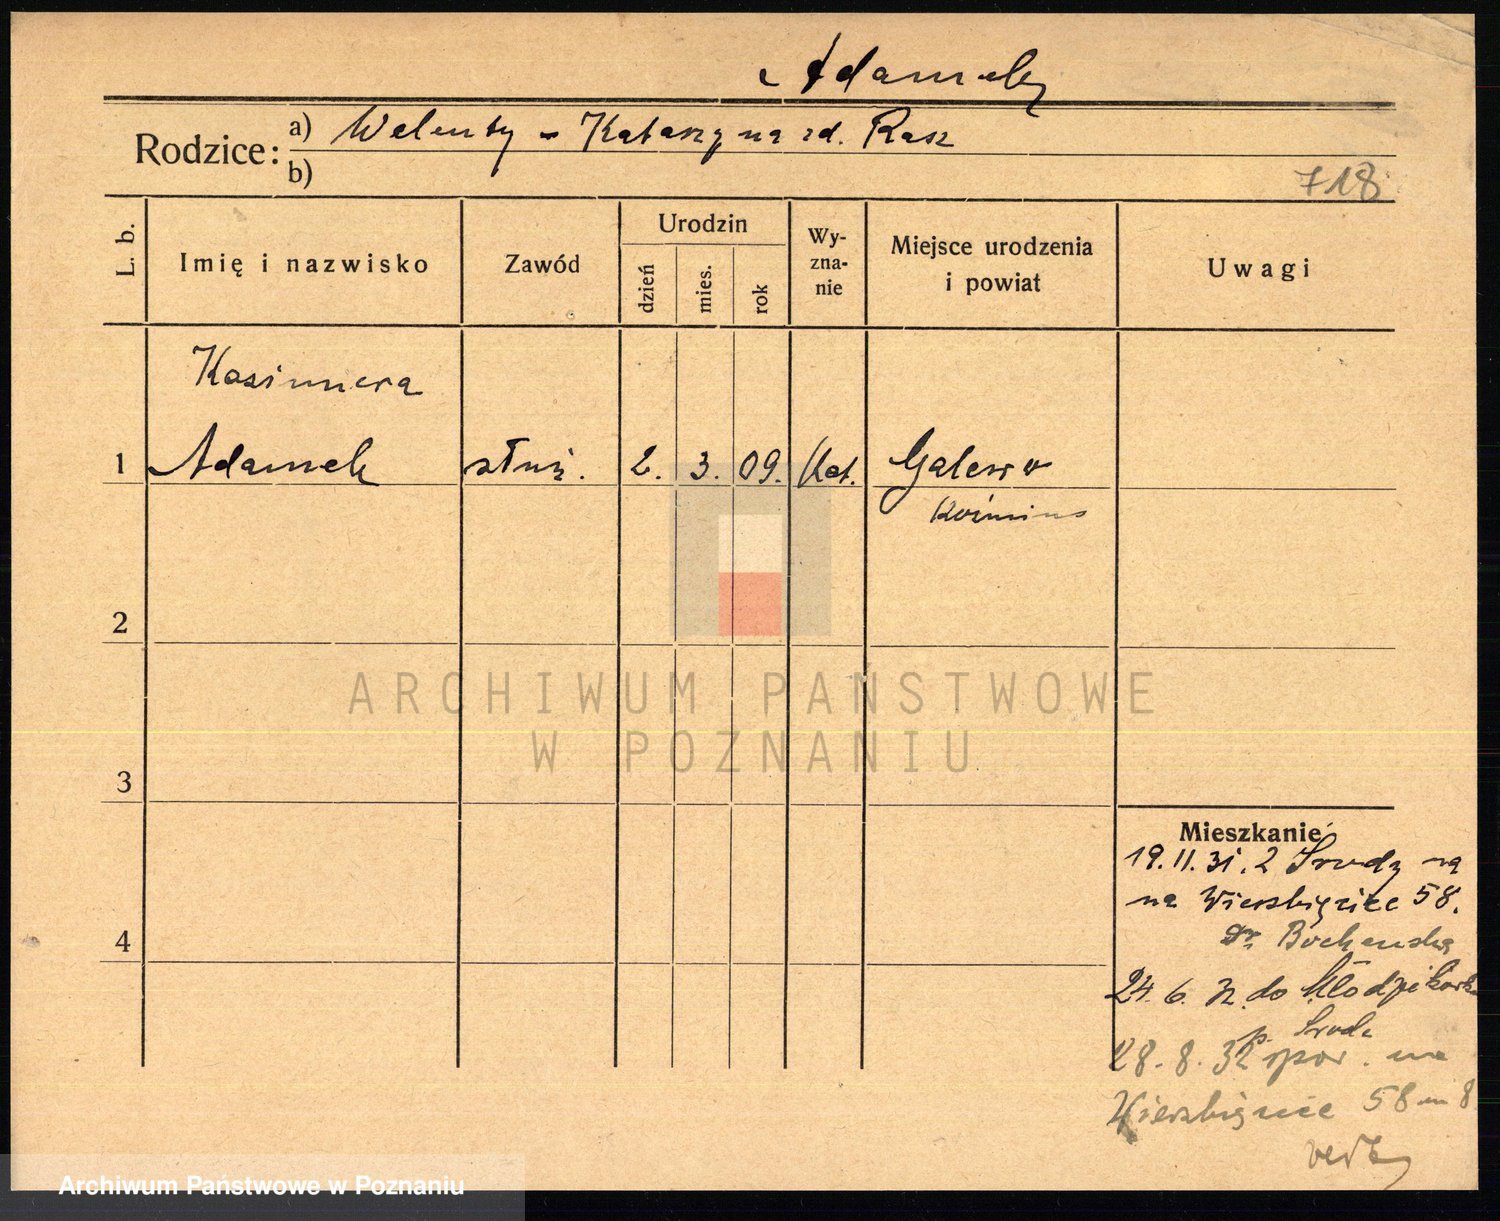 Adamek
Rodzice: a) Walenty - Katarzyna zd. Rasz
b)
718
L. b.
Imię i nazwisko
Zawód
Urodzin
dzień
mies.
rok
Wy-
zna-
nie
Miejsce urodzenia
i powiat
Uwagi
Kazimiera
1 Adamek służ. 2. 3. 09. Kat. Galewo
Koźmin
2
ARCHIWUM PAŃSTWOWE
W POZNANIU
3
4
Mieszkanie
19.11.31. z Środy
na Wierzbięcice 58.
Bocheńska
24. 6. 32. do
p. Środa
28. 8. 32 na
Wierzbięcice 58 m 8
Archiwum Państwowe w Poznaniu